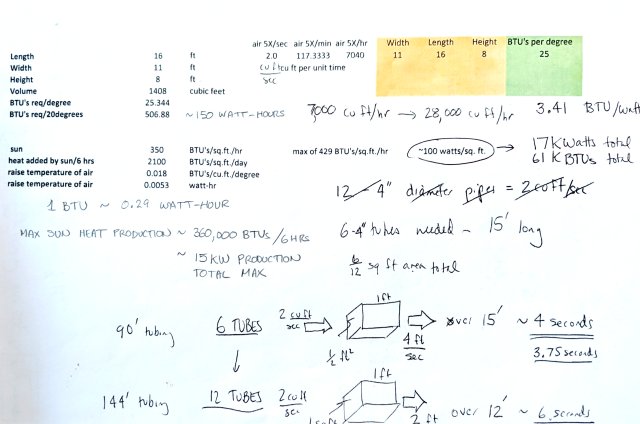 air 5X/sec air 5X/min air 5X/hr Width Length Height BTU's per degree
Length 16 ft 2.0 117.3333 7040 11 16 8 25
Width 11 ft cu ft cu ft per unit time
Height 8 ft sec
Volume 1408 cubic feet
BTU's req/degree 25.344
BTU's req/20degrees 506.88 ~150 WATT-HOURS 7000 cu ft/hr → 28,000 cu ft/hr 3.41 BTU/watt
sun 350 BTU's/sq.ft./hr max of 429 BTU's/sq.ft./hr ~100 watts/sq. ft. → 17K Watts total
heat added by sun/6 hrs 2100 BTU's/sq.ft./day 61 K BTUs total
raise temperature of air 0.018 BTU's/cu.ft./degree
raise temperature of air 0.0053 watt-hr 12 - 4" diameter pipes = 2 cu ft/sec
1 BTU ~ 0.29 WATT-HOUR
MAX SUN HEAT PRODUCTION ~ 360,000 BTUs/6 HRS 6-4" tubes needed - 15' long
~ 15 KW PRODUCTION
TOTAL MAX
6/12 sq ft area total
1 ft
90' tubing 6 TUBES 2 cu ft/sec over 15' ~ 4 seconds
1/2 ft² 4 ft/sec 3.75 seconds
↓
1 ft
144' tubing 12 TUBES 2 cu ft/sec 2 ft over 12' ~ 6 seconds